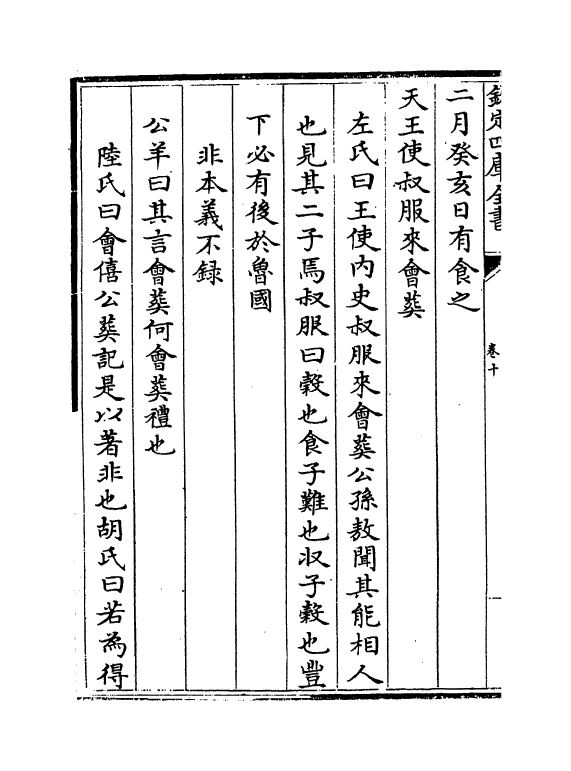 欽定四庫全書
卷十
二月癸亥日有食之
天王使叔服來會葬
左氏曰王使内史叔服來會葬公孫敖聞其能相人
也見其二子焉叔服曰穀也食子難也収子穀也豐
下必有後於魯國
非本義不録
公羊曰其言會葬何會葬禮也
陸氏曰會僖公葬記是以著非也胡氏曰若為得